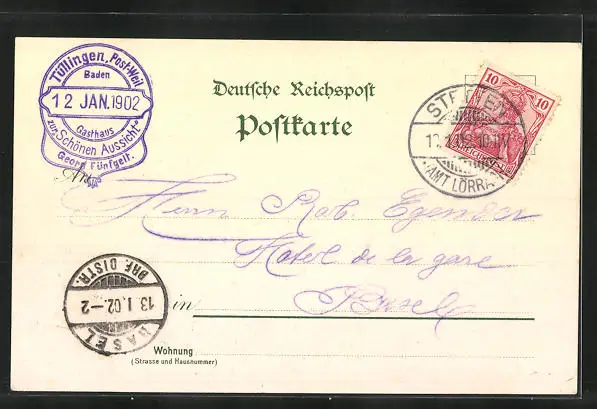 Tüllingen, Post Weil
Baden
12 JAN. 1902
Gasthaus
zur „Schönen Aussicht“
Georg Fünfgelt.
Deutsche Reichspost
Postkarte
10 10
STETTEN
(AMT LÖRRACH)
An
Herrn Rob.
Hotel de la gare
in Basel
BASEL
13.I.02.-2
BRF. DISTR.
Wohnung
(Strasse und Hausnummer)